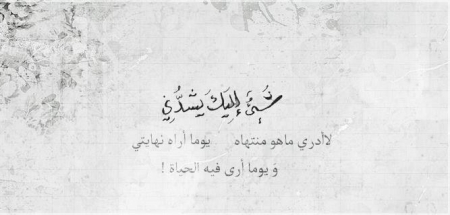 شَيْءٌ إِلَيْكَ يَشُدُّنِي
لاأدري ماهو منتهاه يوما أراه نهايتي
و يوما أرى فيه الحياة !